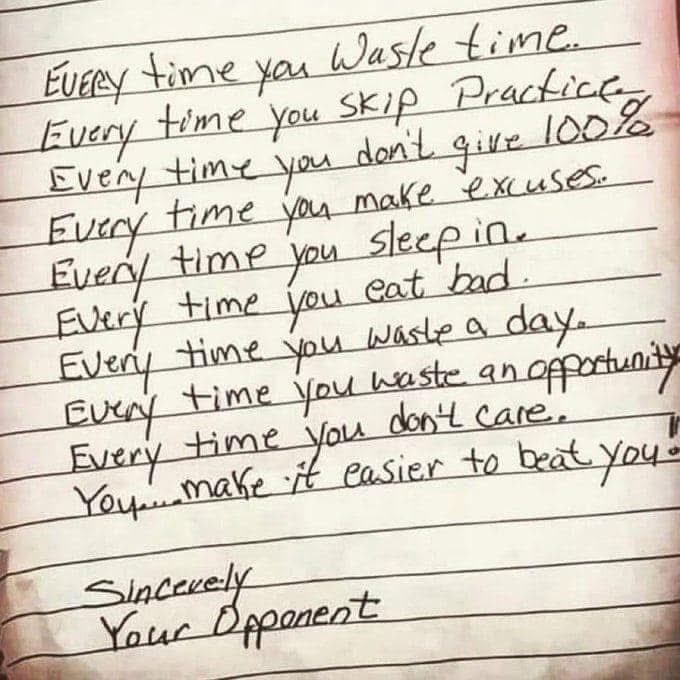 EVERY time you Waste time..
Every time you SKIP Practice
Every time you don't give 100%
Every time you make excuses.
Every time you sleep in.
Every time you eat bad.
Every time you waste a day.
Every time you waste an opportunity
Every time you don't care.
You.....make it easier to beat you!!
Sincerely
Your Opponent